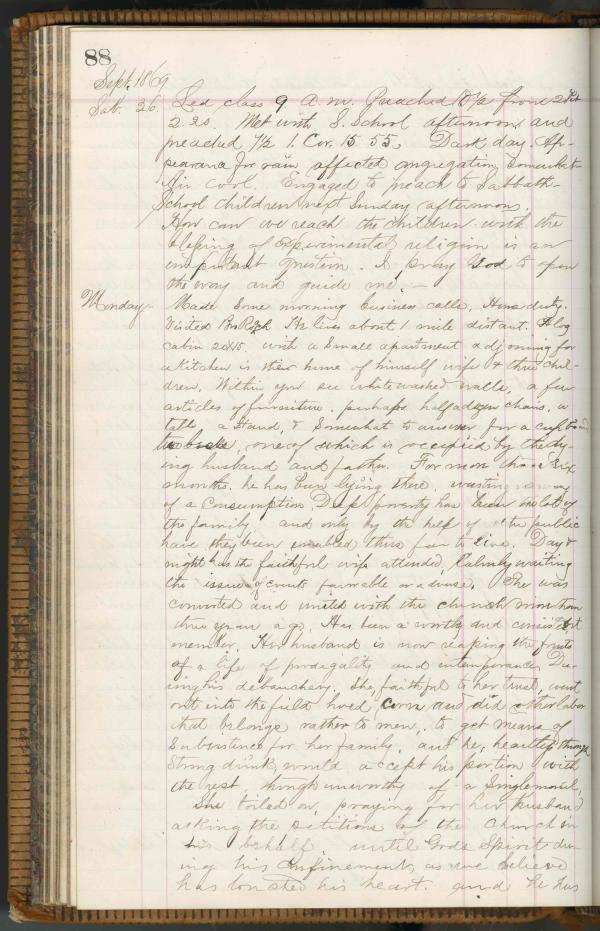 88
Sept. 1869
Sab. 26. Led class 9 A.M. Preached 10 1/2 from 2 Pet
2.20. Met with S. School afternoon and
preached 7 1/2 1. Cor. 15 55. Dark day. Ap-
pearance for rain affected congregation somewhat
Air cool. Engaged to preach to Sabbath-
School children next Sunday afternoon.
How can we reach the children with the
blessing of experimental religion is an
important question. I pray God to open
the way and guide me! —
Monday Made some morning business calls. Home duty.
Visited He lives about 1 mile distant. A log
cabin 20x15. with a small apartment adjoining for
a kitchen is the home of himself wife & three chil-
dren. Within you see whitewashed walls, a few
articles of furniture. perhaps half a dozen chairs, a
table a stand, & somewhat to answer for a cupboard
two beds, one of which is occupied by the dy-
ing husband and father. For more than six
months. he has been lying there. wasting away
of a consumption. Deep poverty has been the lot of
the family, and only by the help of the public
have they been enabled thus far to live. Day &
night has the faithful wife attended, calmly waiting
the issue of events favorable or adverse. She was
converted and united with the church more than
three years ago. Has been a worthy and consistent
member. Her husband is now reaping the fruits
of a life of prodigality and intemperance. Du-
ring his debauchery. She, faithful to her trust, went
out into the field hoed corn and did other labor
that belongs rather to men, to get means of
subsistence for her family, and he, through
strong drink, would accept his portion with
the rest, though unworthy of a single morsel,
She toiled on, praying for her husband
asking the petitions of the church in
his behalf. until God's Spirit du-
ring his confinement, as we believe
has touched his heart. and he has